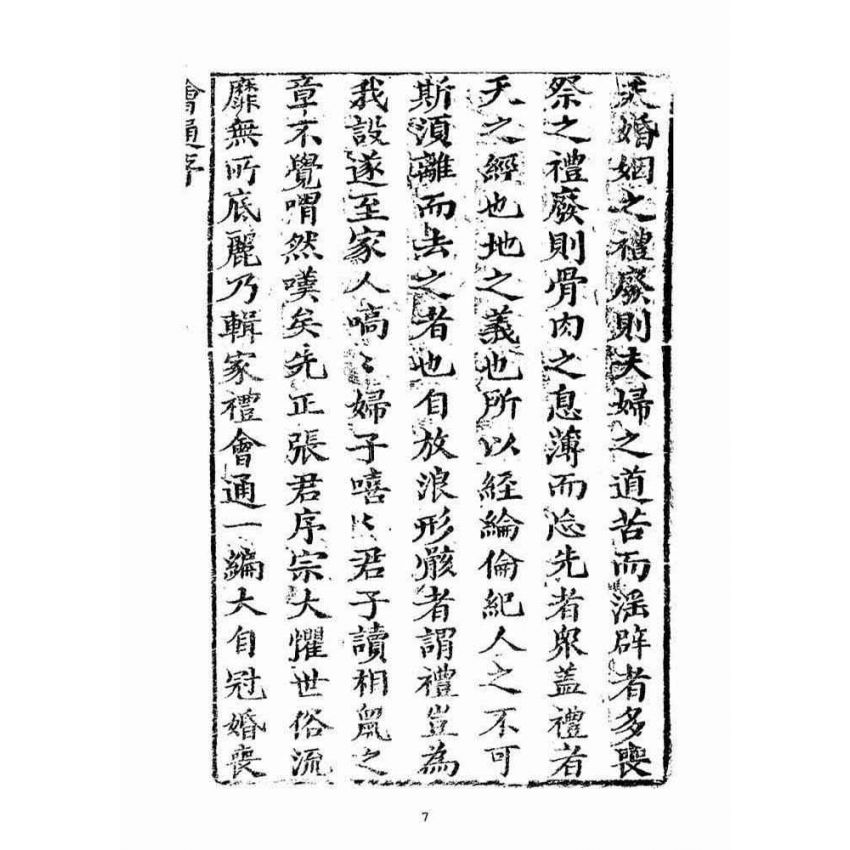 夫婚姻之禮廢則夫婦之道苦而滛辟者多喪
祭之禮廢則骨肉之息薄而忘先者衆盖禮者
天之經也地之義也所以経綸倫紀人之不可
斯湏離而去之者也自放浪形骸者謂禮豈為
我設遂至家人嗃〻婦子嘻〻君子讀相鼠之
章不覺喟然嘆矣先正張君序宗大懼世俗流
靡無所底麗乃輯家禮會通一編大自冠婚喪
會通序
7